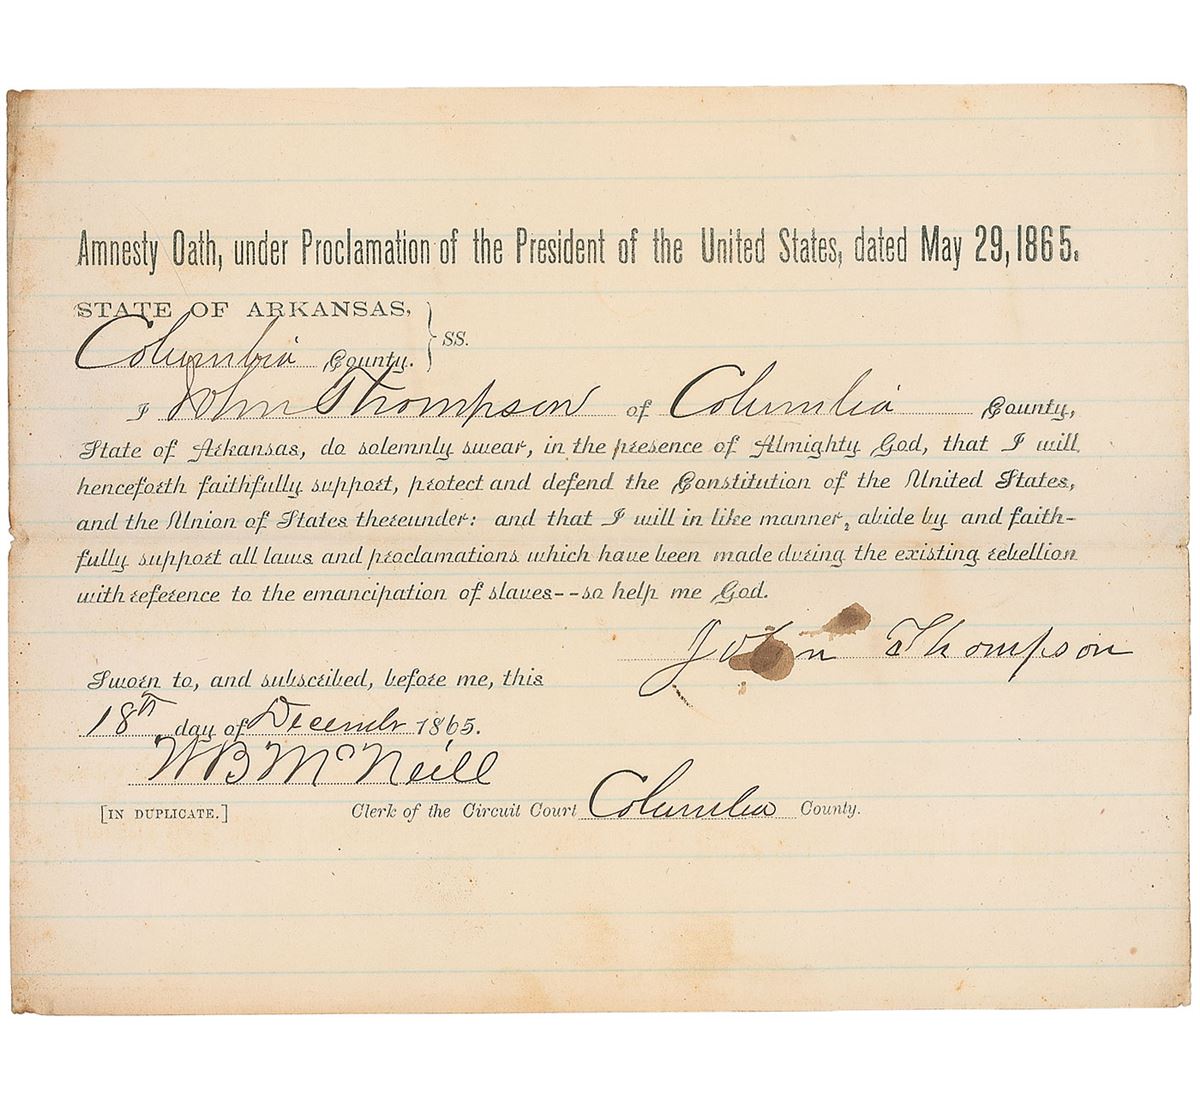 Amnesty Oath, under Proclamation of the President of the United States, dated May 29, 1865.
STATE OF ARKANSAS,
Columbia County. } SS.
I John Thompson of Columbia County,
State of Arkansas, do solemnly swear, in the presence of Almighty God, that I will
henceforth faithfully support, protect and defend the Constitution of the United States,
and the Union of States thereunder: and that I will in like manner, abide by and faith-
fully support all laws and proclamations which have been made during the existing rebellion
with reference to the emancipation of slaves--so help me God.
John Thompson
Sworn to, and subscribed, before me, this
18th day of December 1865.
W B McNeill
[IN DUPLICATE.] Clerk of the Circuit Court Columbia County.